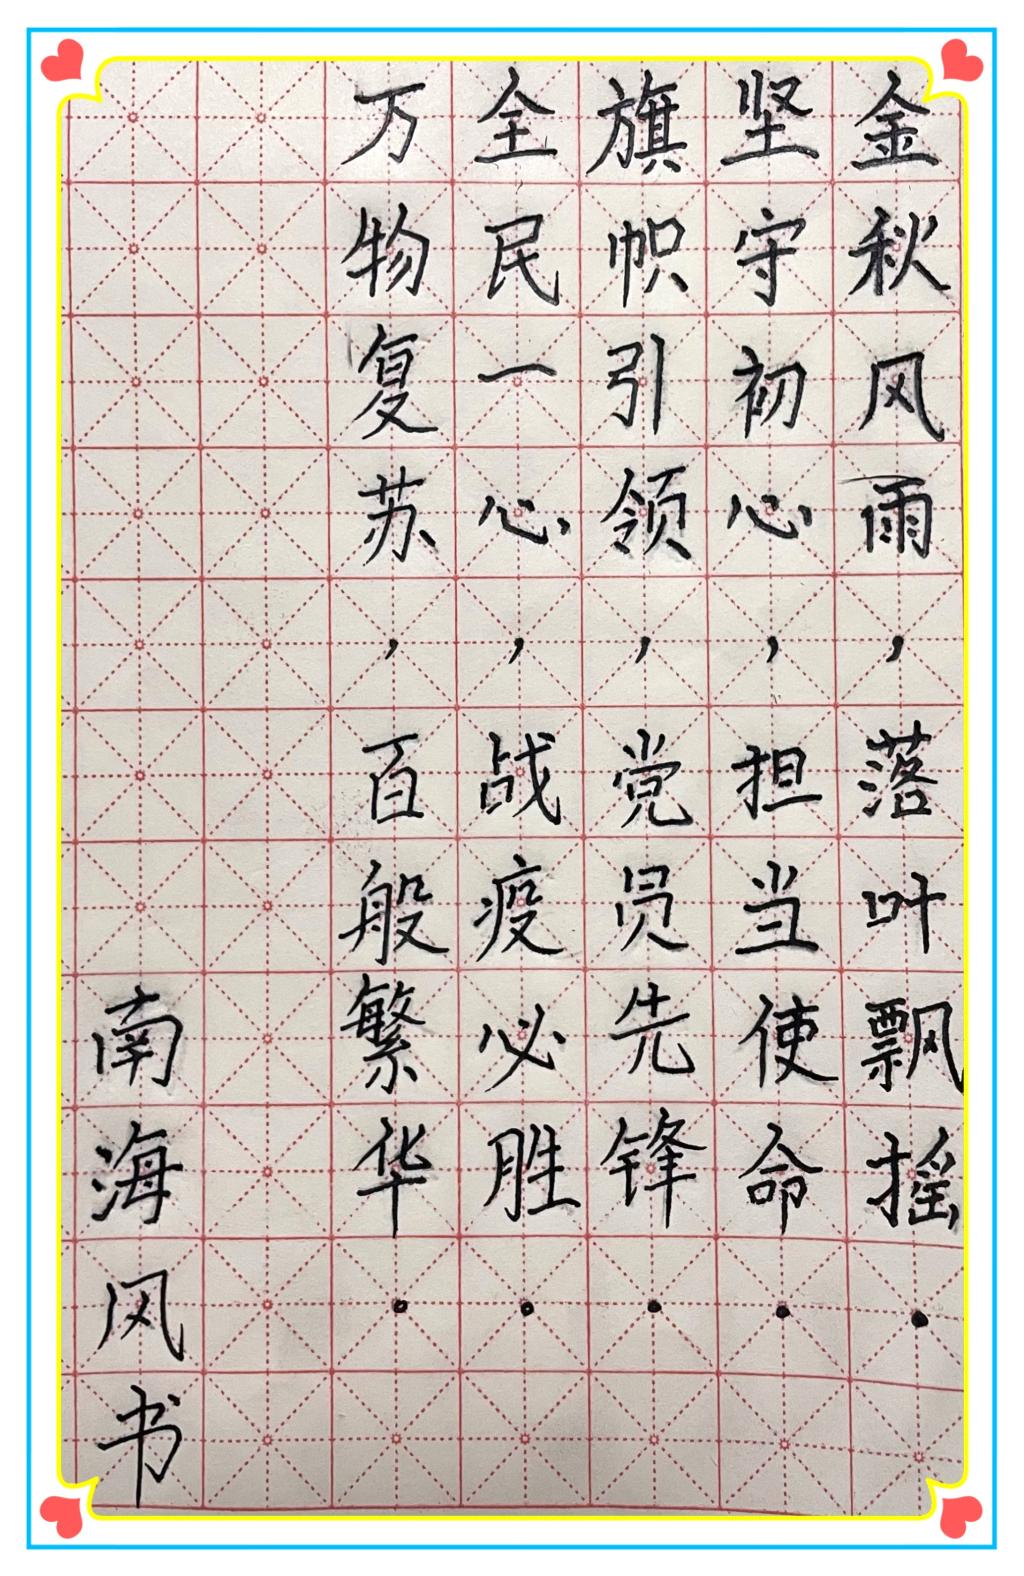 金秋风雨，落叶飘摇。
坚守初心，担当使命。
旗帜引领，党员先锋。
全民一心，战疫必胜。
万物复苏，百般繁华。
南海风书